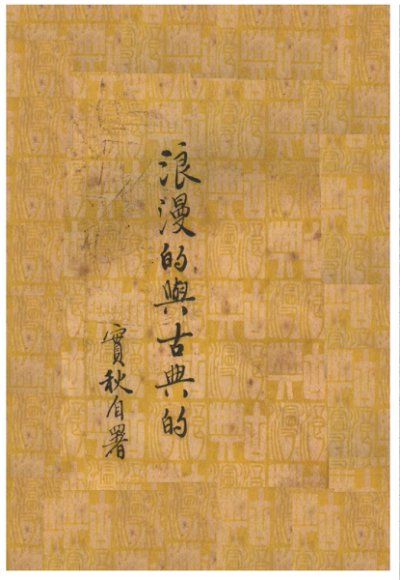 浪漫的與古典的
實秋自署